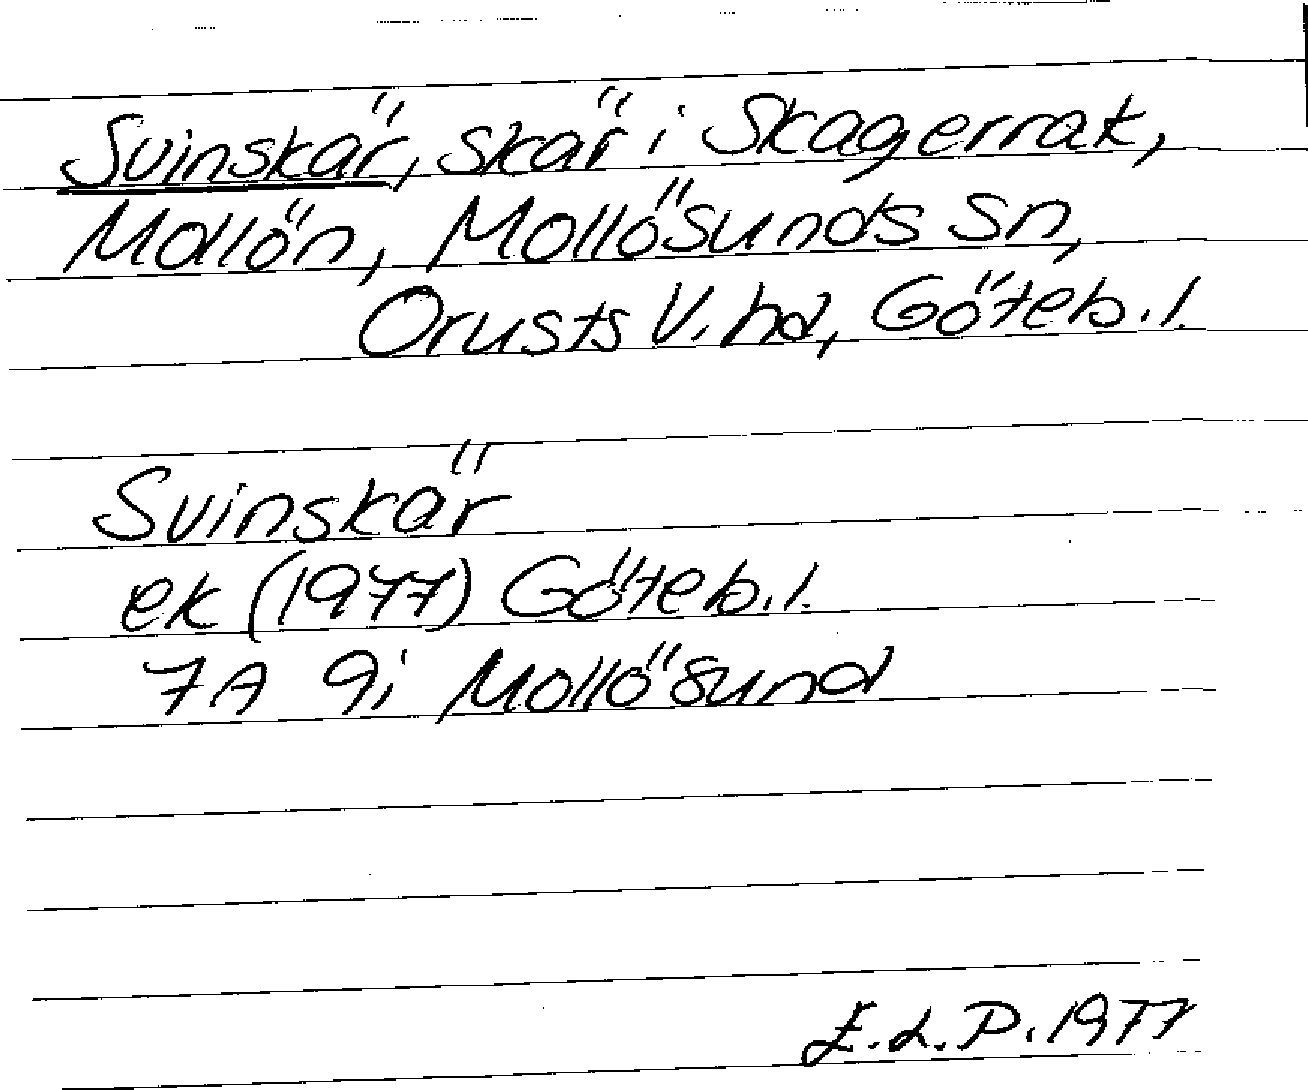 Svinskär, skär i Skagerrak,
Mollön, Mollösunds sn,
Orusts V. hd, Göteb.l.
Svinskär
ek (1977) Göteb.l.
7A 9i Mollösund
E.L.P. 1977